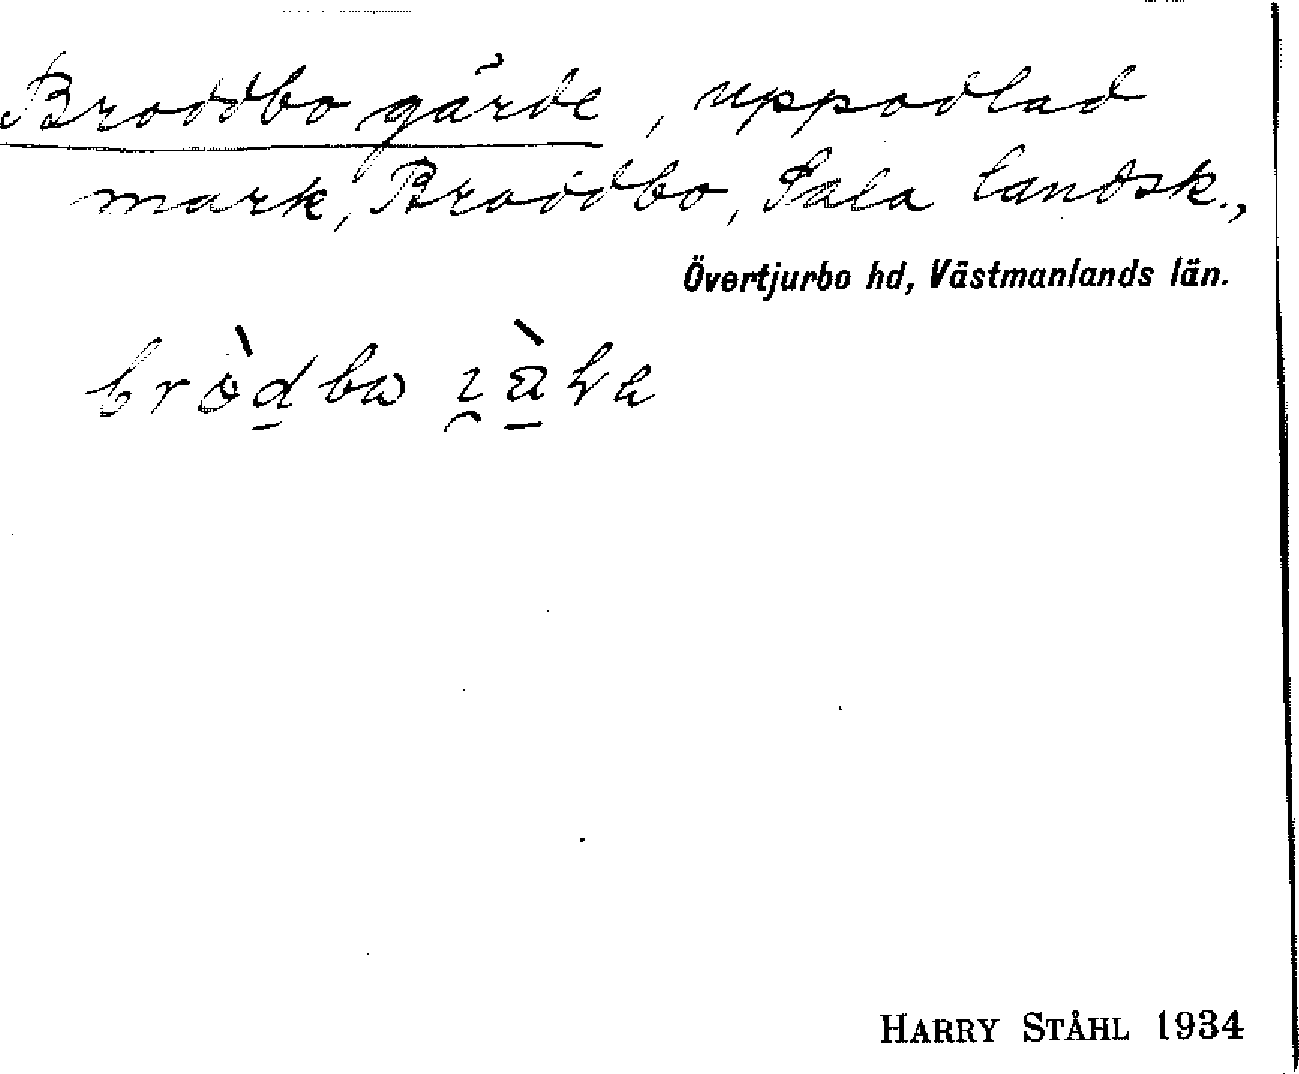 Broddbo gärde, uppodlad
mark, Broddbo, Sala landsk.,
Övertjurbo hd, Västmanlands län.
HARRY STÅHL 1934